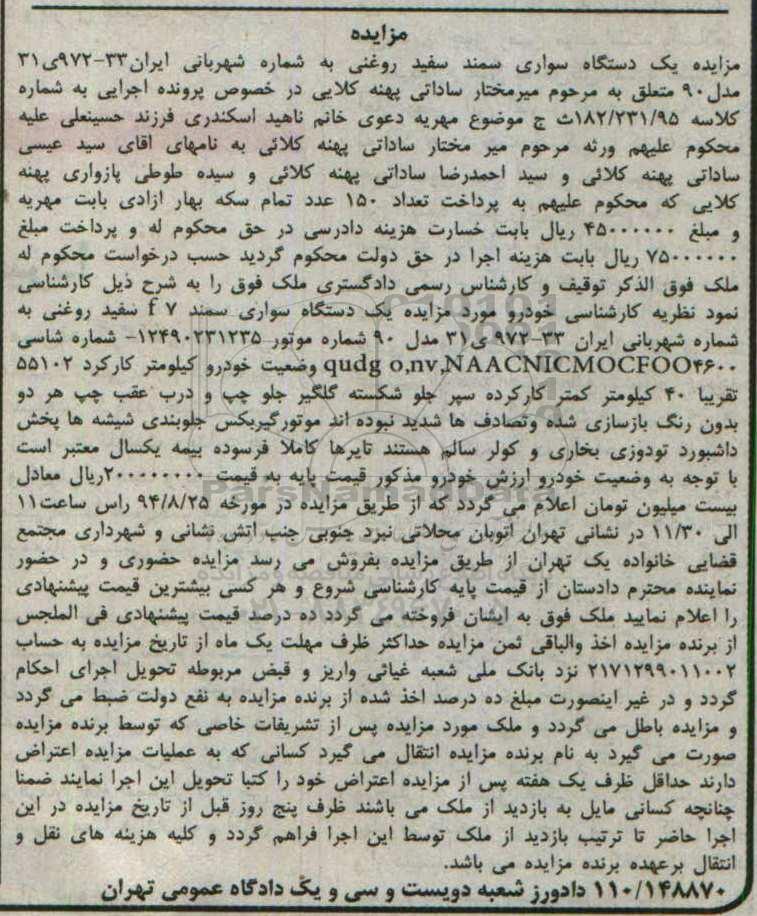 مزایده
مزایده یک دستگاه سواری سمند سفید روغنی به شماره شهربانی ایران۳۳-۹۷۲ی۳۱
مدل۹۰ متعلق به مرحوم میرمختار ساداتی پهنه کلایی در خصوص پرونده اجرایی به شماره
کلاسه ۱۸۲/۲۳۱/۹۵ث ج موضوع مهریه دعوی خانم ناهید اسکندری فرزند حسینعلی علیه
محکوم علیهم ورثه مرحوم میر مختار ساداتی پهنه کلائی به نامهای اقای سید عیسی
ساداتی پهنه کلائی و سید احمدرضا ساداتی پهنه کلائی و سیده طوطی پازواری پهنه
کلایی که محکوم علیهم به پرداخت تعداد ۱۵۰ عدد تمام سکه بهار ازادی بابت مهریه
و مبلغ ۴۵۰۰۰۰۰۰ ریال بابت خسارت هزینه دادرسی در حق محکوم له و پرداخت مبلغ
۷۵۰۰۰۰۰۰ ریال بابت هزینه اجرا در حق دولت محکوم گردید حسب درخواست محکوم له
ملک فوق الذکر توقیف و کارشناس رسمی دادگستری ملک فوق را به شرح ذیل کارشناسی
نمود نظریه کارشناسی خودرو مورد مزایده یک دستگاه سواری سمند f ۷ سفید روغنی به
شماره شهربانی ایران ۳۳-۹۷۲ ی۳۱ مدل ۹۰ شماره موتور ۱۲۴۹۰۲۳۱۲۳۵- شماره شاسی
qudg o,nv,NAACNICMOCFOO۴۶۰۰ وضعیت خودرو کیلومتر کارکرد ۵۵۱۰۲
تقریبا ۴۰ کیلومتر کمتر کارکرده سپر جلو شکسته گلگیر جلو چپ و درب عقب چپ هر دو
بدون رنگ بازسازی شده وتصادف ها شدید نبوده اند موتورگیربکس جلوبندی شیشه ها پخش
داشبورد تودوزی بخاری و کولر سالم هستند تایرها کاملا فرسوده بیمه یکسال معتبر است
با توجه به وضعیت خودرو ارزش خودرو مذکور قیمت پایه به قیمت ۲۰۰۰۰۰۰۰۰ریال معادل
بیست میلیون تومان اعلام می گردد که از طریق مزایده در مورخه ۹۴/۸/۲۵ راس ساعت۱۱
الی ۱۱/۳۰ در نشانی تهران اتوبان محلاتی نبرد جنوبی جنب اتش نشانی و شهرداری مجتمع
قضایی خانواده یک تهران از طریق مزایده بفروش می رسد مزایده حضوری و در حضور
نماینده محترم دادستان از قیمت پایه کارشناسی شروع و هر کسی بیشترین قیمت پیشنهادی
را اعلام نمایید ملک فوق به ایشان فروخته می گردد ده درصد قیمت پیشنهادی فی الملجس
از برنده مزایده اخذ والباقی ثمن مزایده حداکثر ظرف مهلت یک ماه از تاریخ مزایده به حساب
۲۱۷۱۲۹۹۰۱۱۰۰۲ نزد بانک ملی شعبه غیاثی واریز و قبض مربوطه تحویل اجرای احکام
گردد و در غیر اینصورت مبلغ ده درصد اخذ شده از برنده مزایده به نفع دولت ضبط می گردد
و مزایده باطل می گردد و ملک مورد مزایده پس از تشریفات خاصی که توسط برنده مزایده
صورت می گیرد به نام برنده مزایده انتقال می گیرد کسانی که به عملیات مزایده اعتراض
دارند حداقل ظرف یک هفته پس از مزایده اعتراض خود را کتبا تحویل این اجرا نمایند ضمنا
چنانچه کسانی مایل به بازدید از ملک می باشند ظرف پنج روز قبل از تاریخ مزایده در این
اجرا حاضر تا ترتیب بازدید از ملک توسط این اجرا فراهم گردد و کلیه هزینه های نقل و
انتقال برعهده برنده مزایده می باشد.
۱۱۰/۱۴۸۸۷۰ دادورز شعبه دویست و سی و یک دادگاه عمومی تهران
ParsNamadData